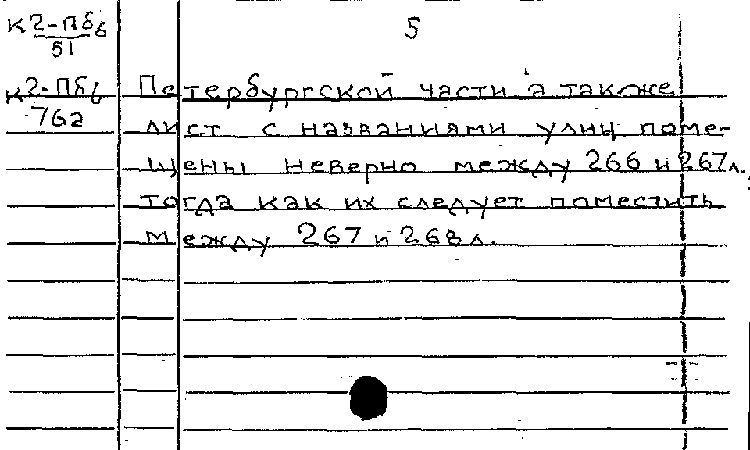 К2-Пб6
51
5
К2-Пб6
76а
Петербургской части а также
лист с названиями улиц поме-
щены неверно между 266 и 267 л.,
тогда как их следует поместить
между 267 и 268 л.